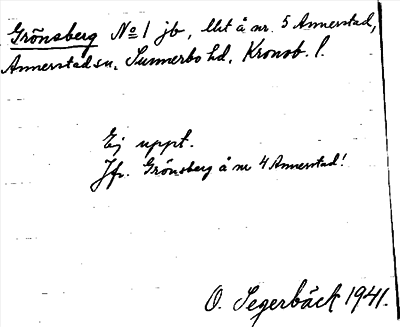 Grönsberg No 1 jb, lht å nr. 5 Annerstad,
Annerstad sn, Sunnerbo hd, Kronob. l.
Ej uppt.
Jfr. Grönsberg å nr 4 Annerstad!
O. Segerbäck 1941.